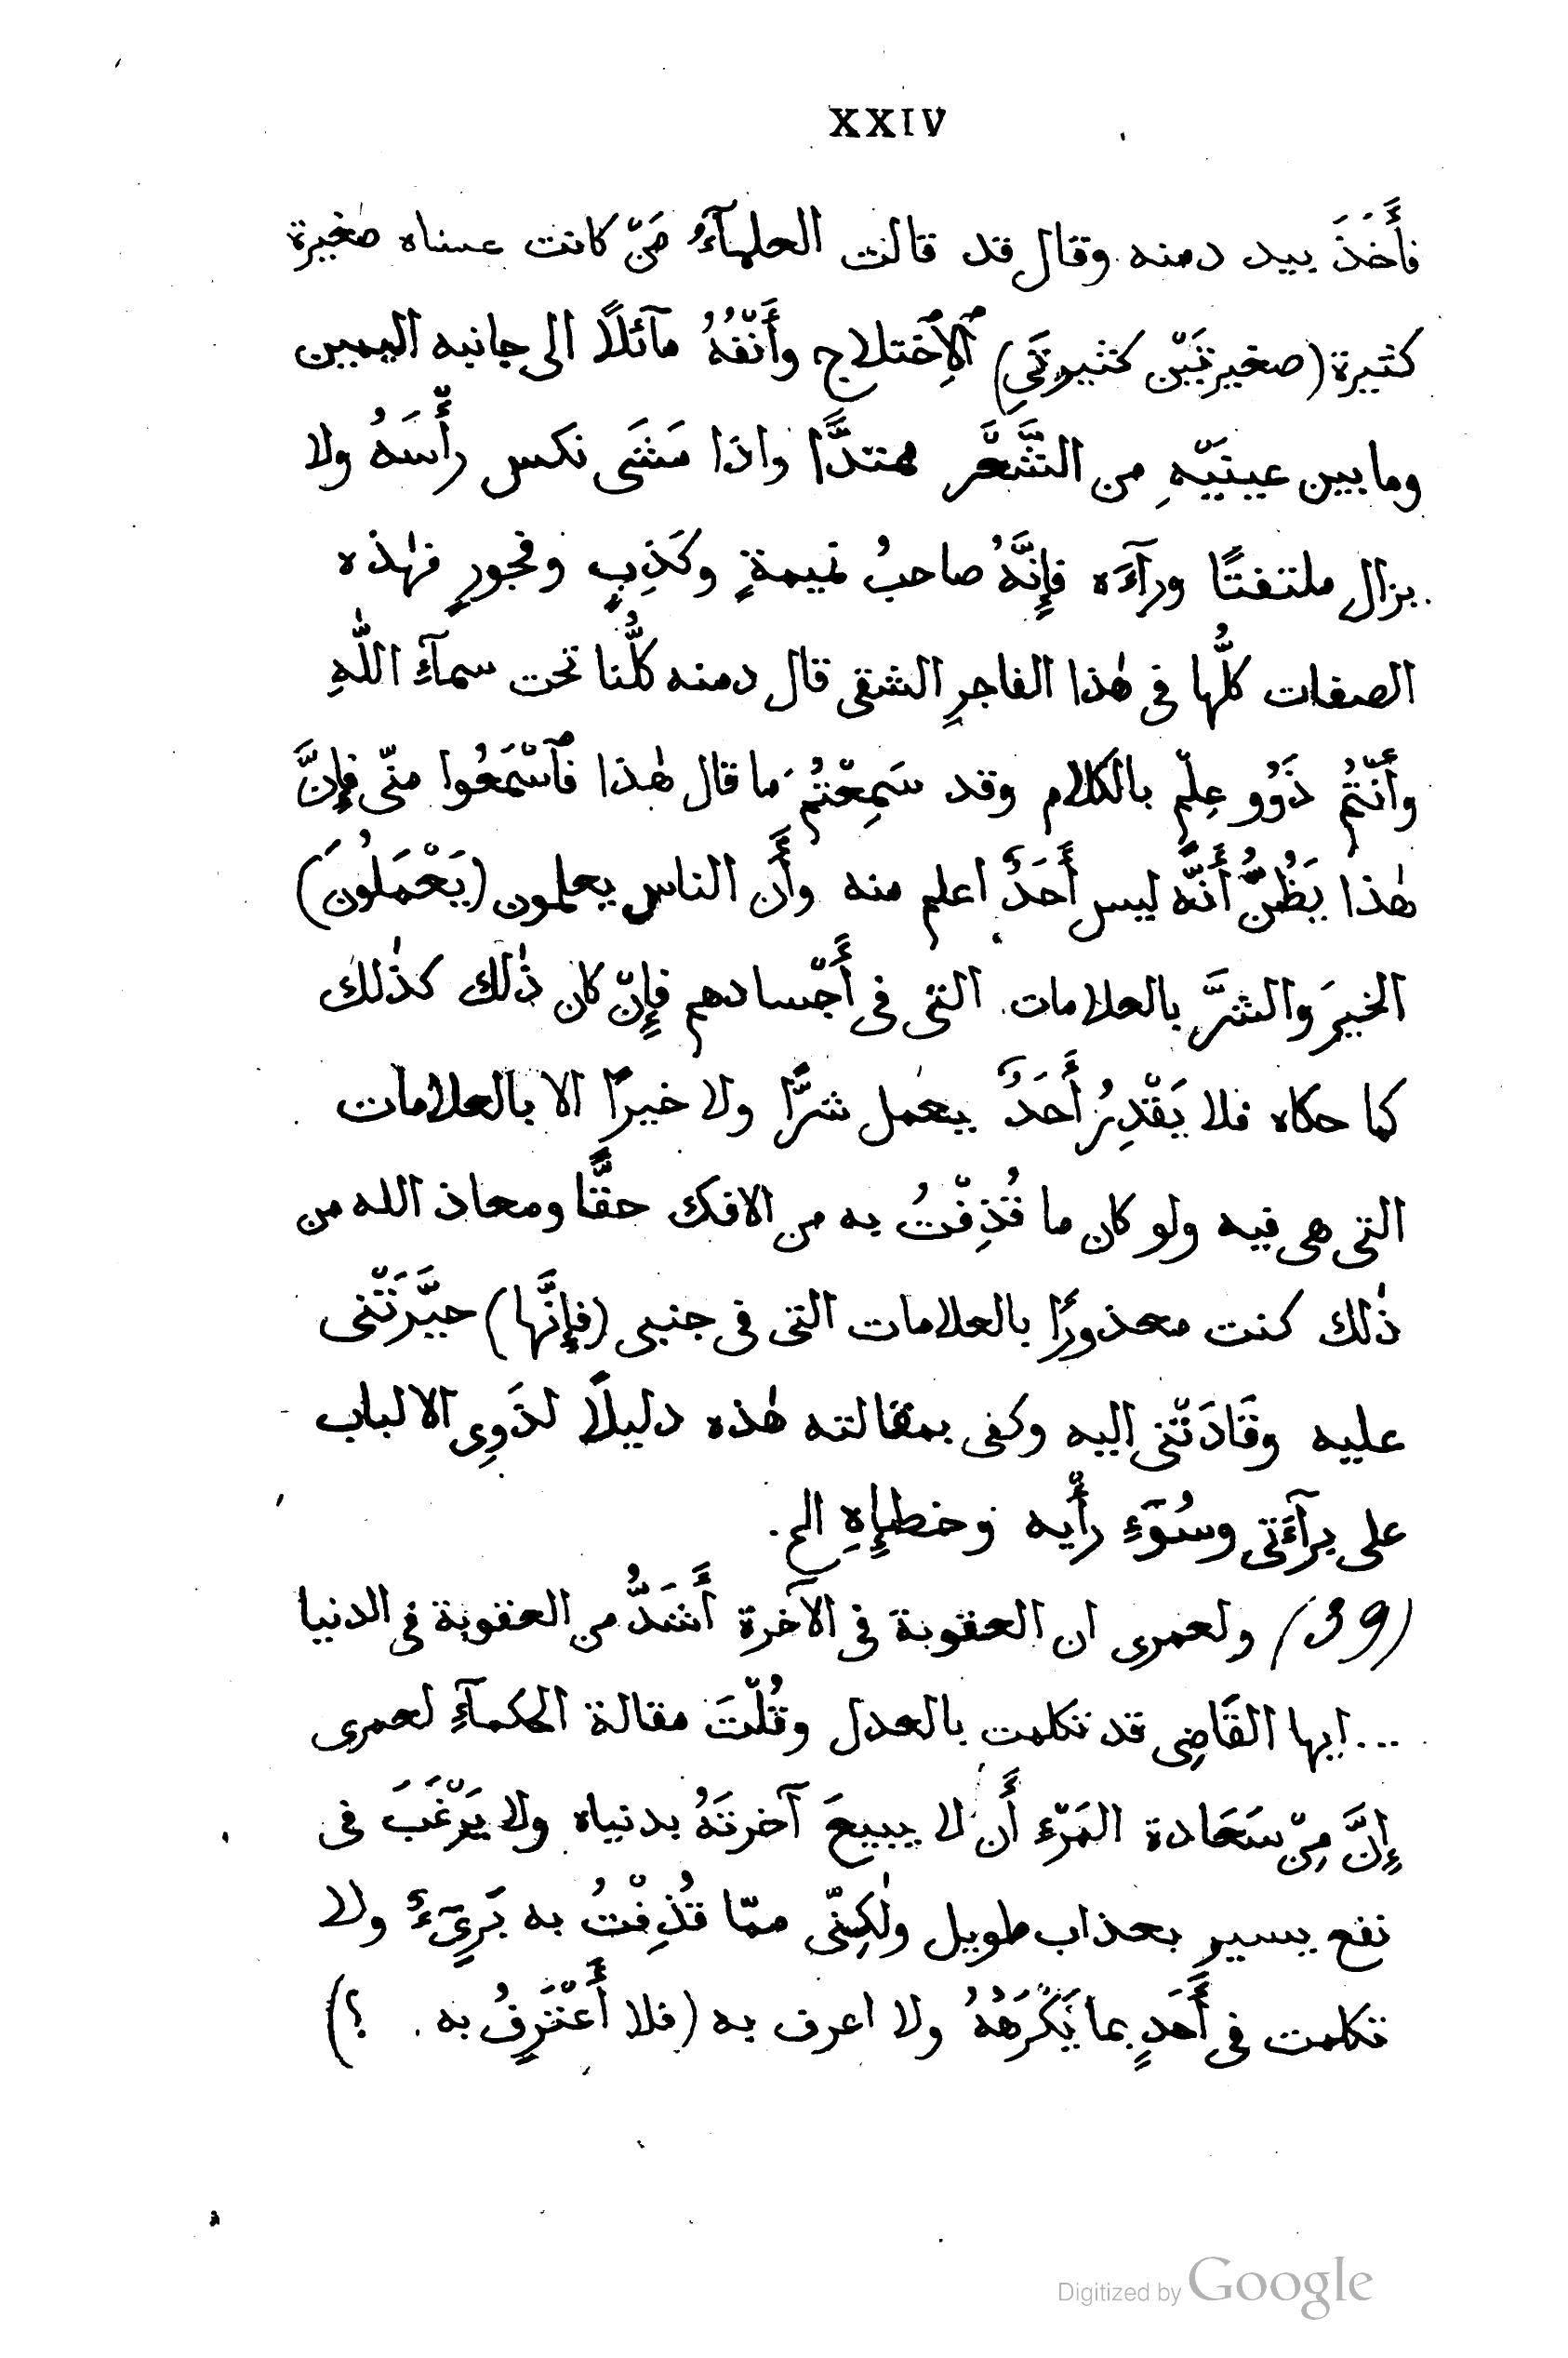 XXIV
فأَخَذَ بيد دمنه وقال قد قالت العلمآءُ مَنْ كانت عسناه صغيرة
كثيرة (صغيرتَيْن كثيرتَيِ) ٱلاِّخْتلاج وأَنْفُهُ مآئلًا الى جانبه اليمين
وما بين عينَيْهِ من الشَّعْر ممتدًّا واذا مَشَى نكس رأْسَهُ ولا
يزال ملتفتًا ورآءَه فإِنَّهُ صاحبُ نميمةٍ وكَذِبٍ وفجورٍ فهٰذه
الصفات كلُّها فى هٰذا الفاجرِ الشقى قال دمنه كلُّنا تحت سمآءِ اللّٰهِ
وأَنْتُم ذَوُو عِلْمٍ بالكلام وقد سَمِعْتُم ما قال هٰذا فٱسْمَعُوا منّى فإِنَّ
هٰذا يَظُنُّ أَنَّه ليس أَحَدٌ اعلم منه وأَن الناس يعلمون (يَعْمَلُونَ)
الخيرَ والشرَّ بالعلامات التى فى أَجْسادهم فإِنْ كان ذٰلك كذٰلك
كما حكاه فلا يَقْدِرُ أَحَدٌ يعمل شرًّا ولا خيرًا الا بالعلامات
التى هى فيه ولو كان ما قُذِفْتُ به من الافك حقًّا ومعاذ الله من
ذٰلك كنت معذورًا بالعلامات التى فى جنبى (فإِنَّها) حيَّرَتْنى
عليه وقَادَتْنى اليه وكفى بمقالته هٰذه دليلًا لذَوِى الالباب
على برآءَتى وسُوْءِ رأْيه وخطإِهِ الخ.
(39) ولعمرى ان العقوبة فى الآخرة أَشَدُّ من العقوبة فى الدنيا
... ايها القَاضِى قد تكلمت بالعدل وقُلْتَ مقالة الحكمآءِ لعمرى
إِنَّ مِنْ سَعَادة المَرْءِ أَن لا يبيعَ آخرتَهُ بدنياه ولا يَرْغَبَ فى
نفع يسير بعذاب طويل ولٰكِنّى ممّا قُذِفْتُ به بَرِىءٌ ولا
تكلمت فى أَحَدٍ بما يَكْرَهُهُ ولا اعرف به (فلا أَعْتَرِفُ به . ؟)
Digitized by Google